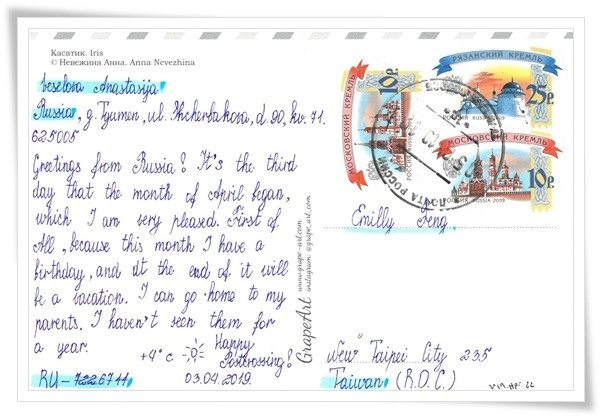 Касатик. Iris
© Невежина Анна. Anna Nevezhina
veselova Anastasija
Russia, g. Tjumen, ul. Shcherbakova, d. 90, kv. 71.
625005
Greetings from Russia! It's the third
day that the month of April began,
which I am very pleased. First of
All, because this month I have a
birthday, and at the end of it will
be a vacation. I can go home to my
parents. I haven't seen them for
a year.
+4° c
Happy
Postcrossing!
RU-7226711
03.04.2019.
GrapeArt
www.grape-art.com
instagram @grape.art.com
МОСКОВСКИЙ КРЕМЛЬ
10р.
РЯЗАНСКИЙ КРЕМЛЬ
25р.
РОССИЯ RUSSIA·2009
МОСКОВСКИЙ КРЕМЛЬ
10р.
РОССИЯ RUSSIA·2009
ПОЧТА РОССИИ
Emilly Feng.
New Taipei City 235
Taiwan (R.O.C.)